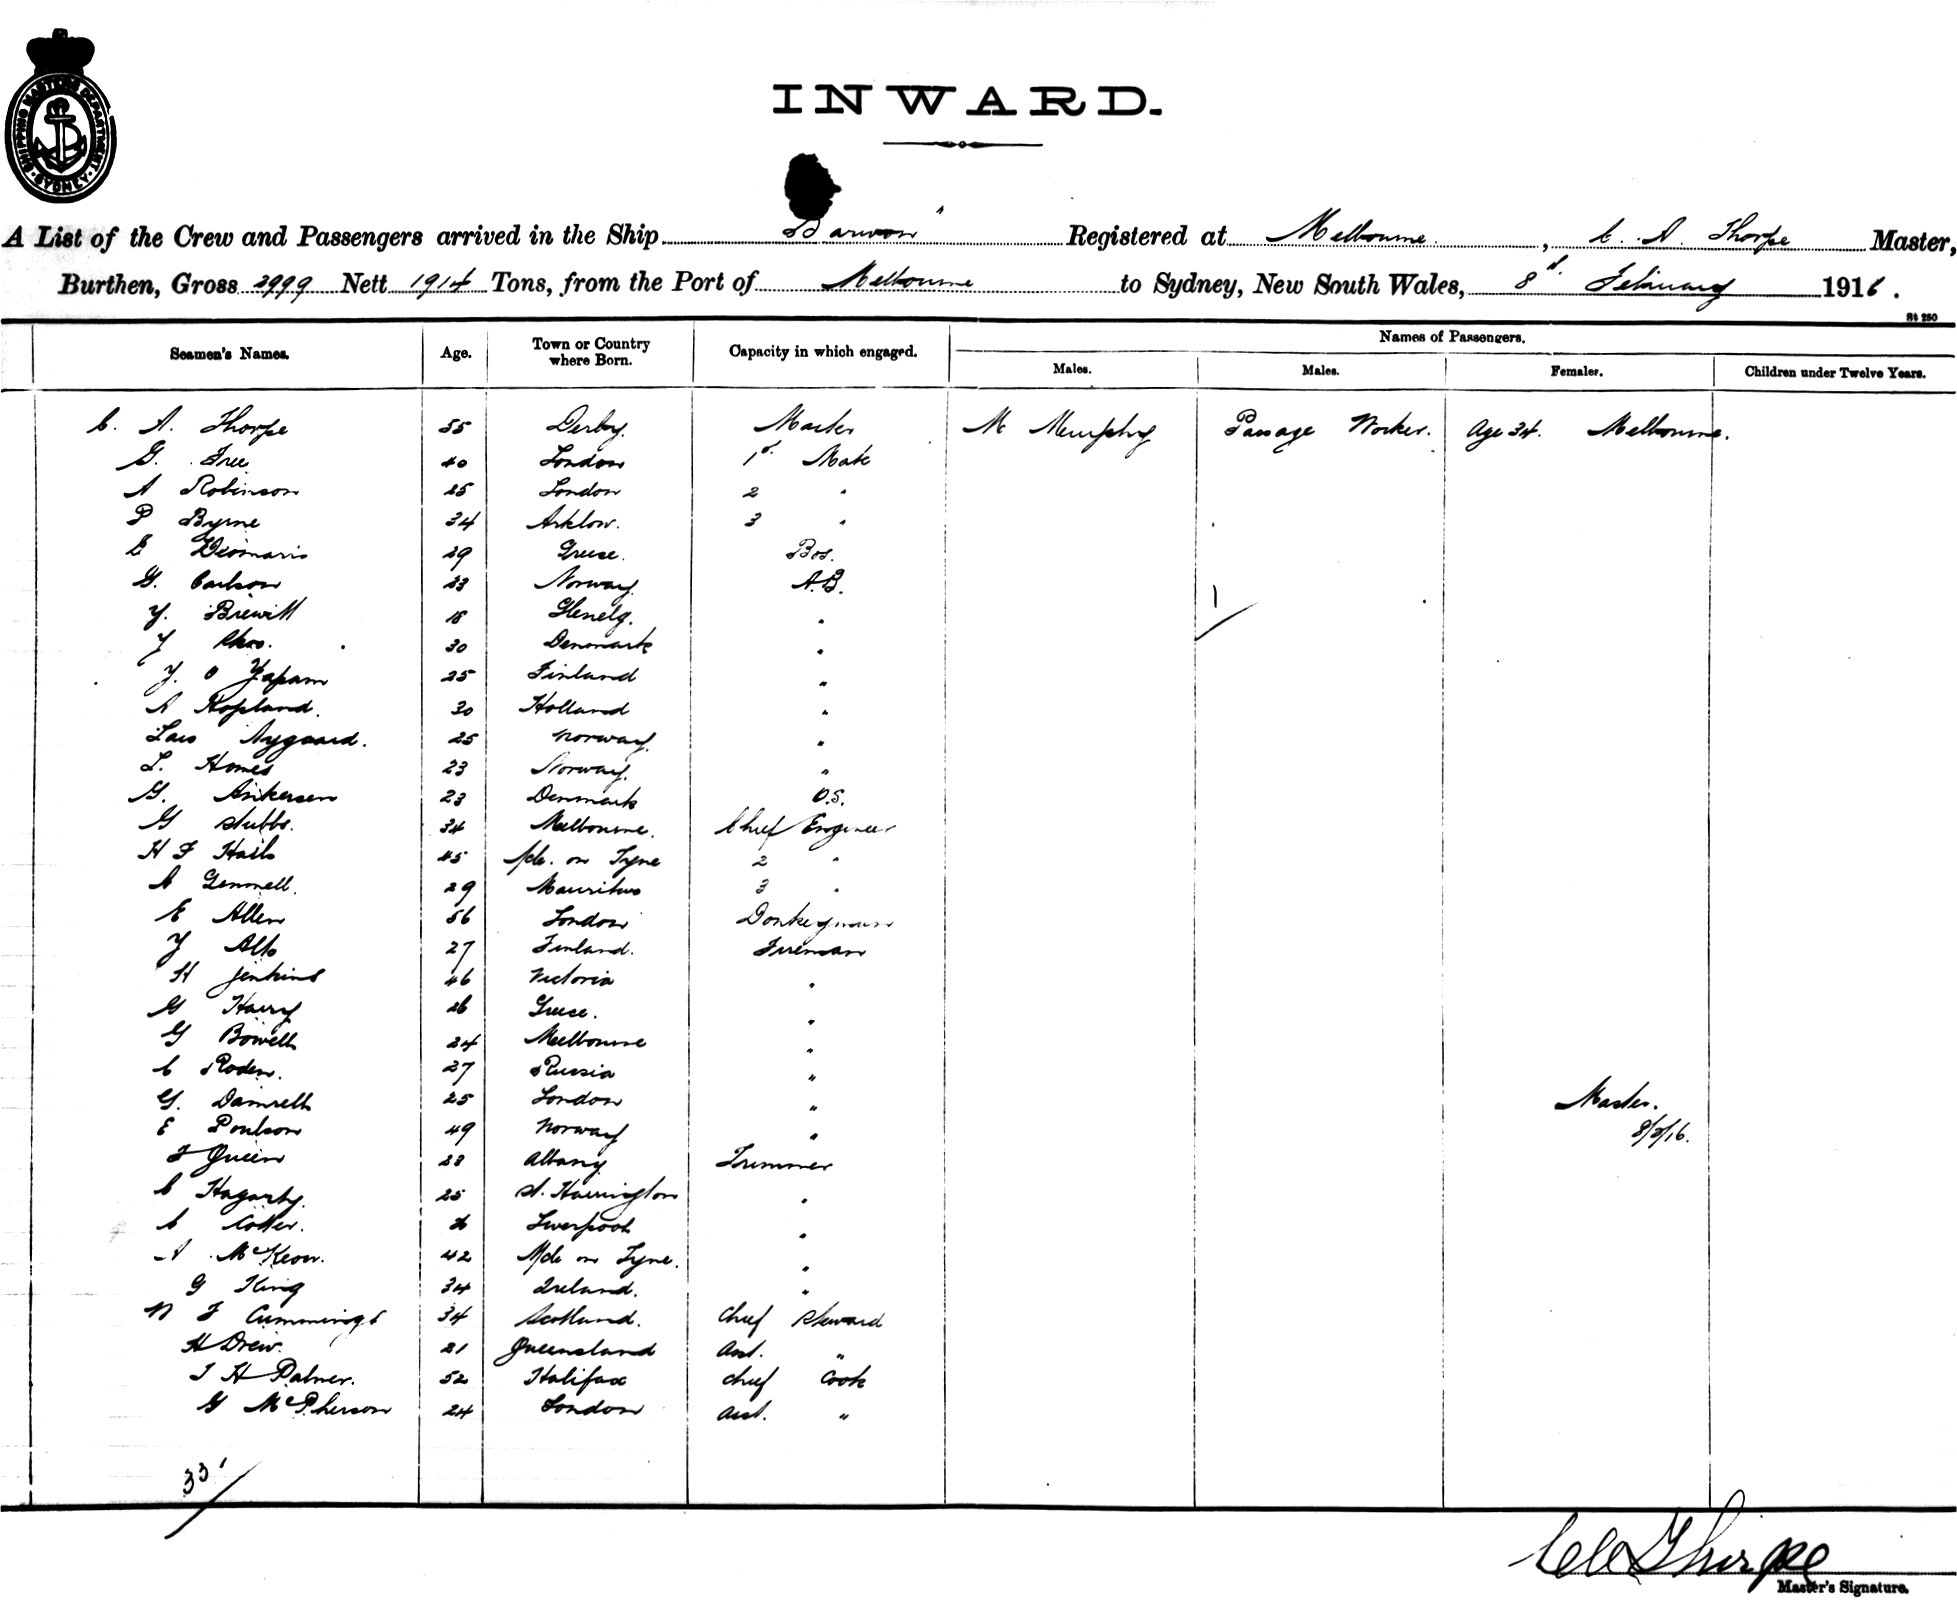 SHIPPING MASTERS DEPARTMENT SYDNEY
INWARD.
A List of the Crew and Passengers arrived in the Ship Barwon" Registered at Melbourne, C. A. Thorpe Master,
Burthen, Gross 2999 Nett 1914 Tons, from the Port of Melbourne to Sydney, New South Wales, 8th February 1916.
St 250
Seamen's Names. Age. Town or Country where Born. Capacity in which engaged. Names of Passengers.
Males. Males. Females. Children under Twelve Years.
C. A. Thorpe 55 Derby. Master M Memphy Passage Worker. Age 34. Melbourne.
G. Tree 40 London 1st Mate
A Robinson 25 London 2 "
P Byrne 34 Arklow. 3 "
E 29 Greese. Bos.
G. Carlson 23 Norway. A.B.
J. Brewitt 18 Glenelg. "
J 30 Denmark "
J. O 25 Finland "
A Hopland. 30 Holland "
Lars Nygaard. 25 Norway. "
L. Homes 23 Norway. "
G. Ankersen 23 Denmark O.S.
G Stubbs. 34 Melbourne. Chief Engineer
H F Hails 45 N/cle. on Tyne 2 "
A Gemmell. 29 Mauritius 3 "
E Allen 56 London Donkeyman
J Alto 27 Finland. Fireman
H Jenkins 46 Victoria "
G Harry 26 Greese. "
G Bowell 24 Melbourne "
C Roden. 27 Russia "
G. Damrell 25 London "
Master.
E Poulson 49 Norway "
8/2/16.
F Queen 23 Albany Trimmer
C Hagarty. 25 St. Harrington "
C Cotter. Liverpool "
A McKeow. 42 N/cle on Tyne. "
G King 34 Ireland. "
N F Cummings 34 Scotland. Chief Steward
H Drew. 21 Queensland Asst. "
J H Palmer. 52 Halifax Chief Cook
G McPherson 24 London Asst. "
33
C A Thorpe
Master's Signature.